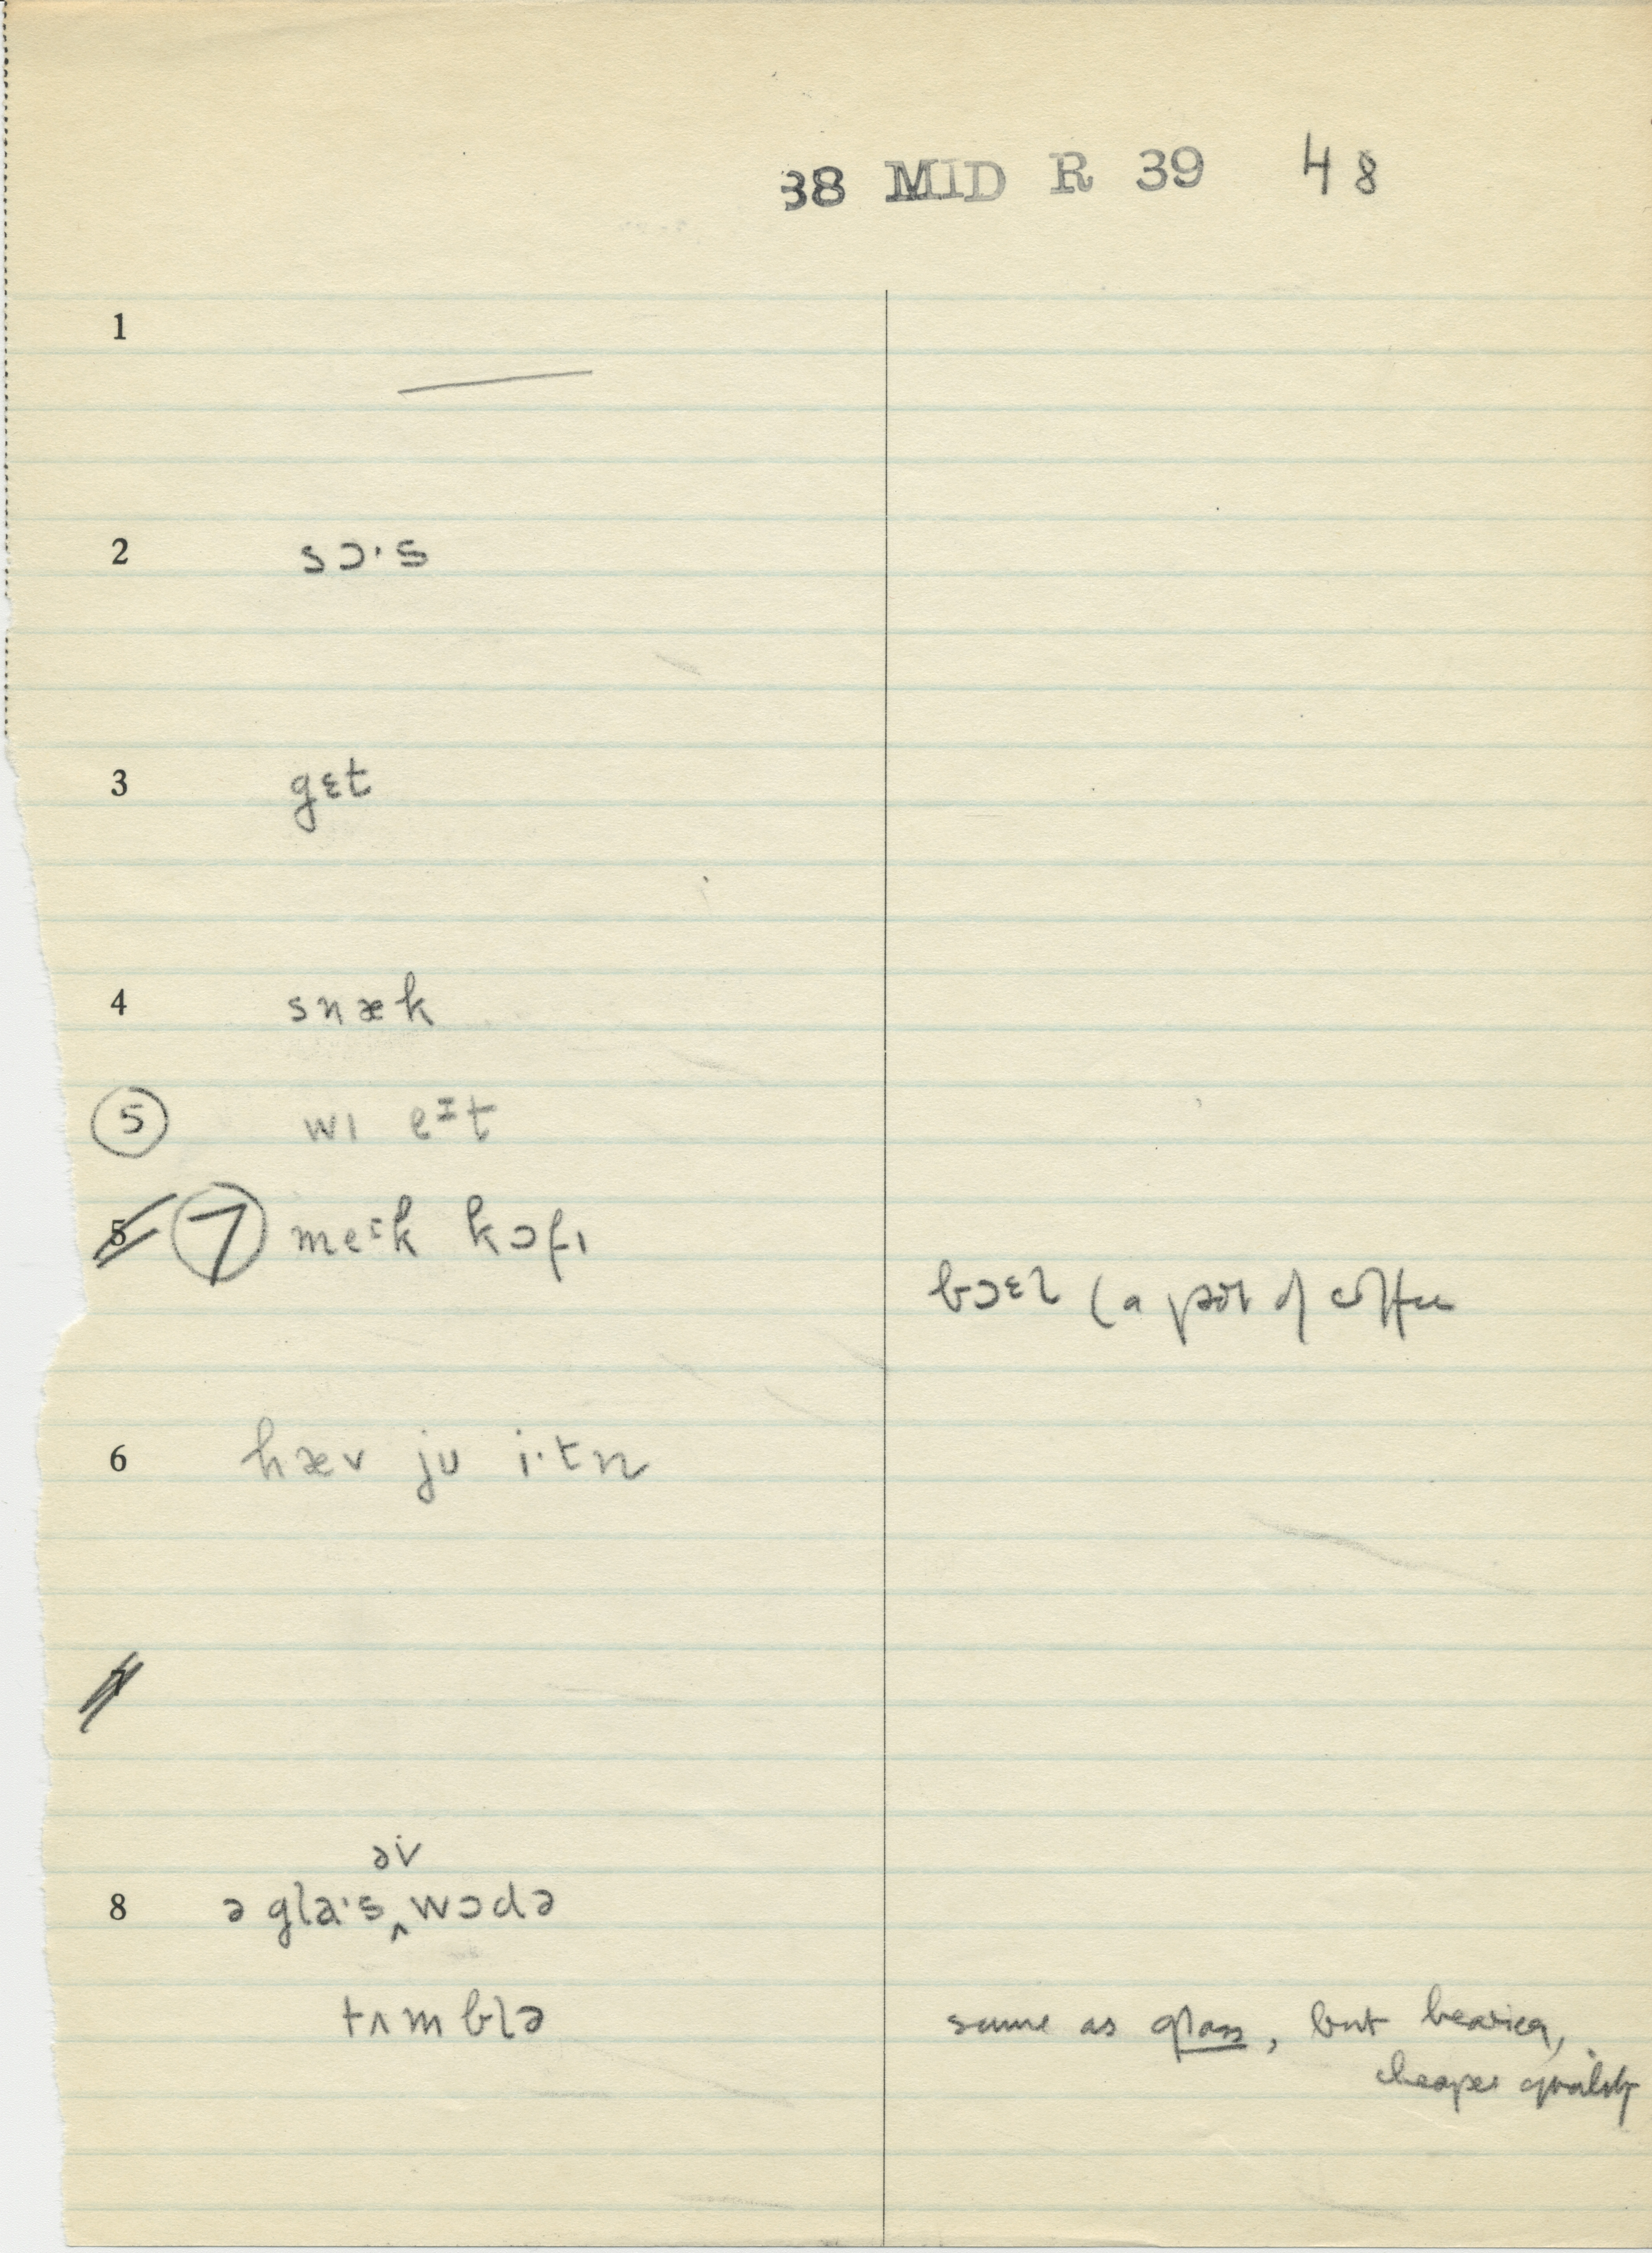 38 MID R 39 48
1
2 sɔ·s
3 gɛt
4 snæk
5 wɪ eᴵt
5 7 meᴵk kɔfɪ
bɔɛl (a pot of coffee
6 hæv ju i·tn
7
əv
8 ə gla·s ‸ wɔdə
tʌmblə same as glass, but heavier,
cheaper quality